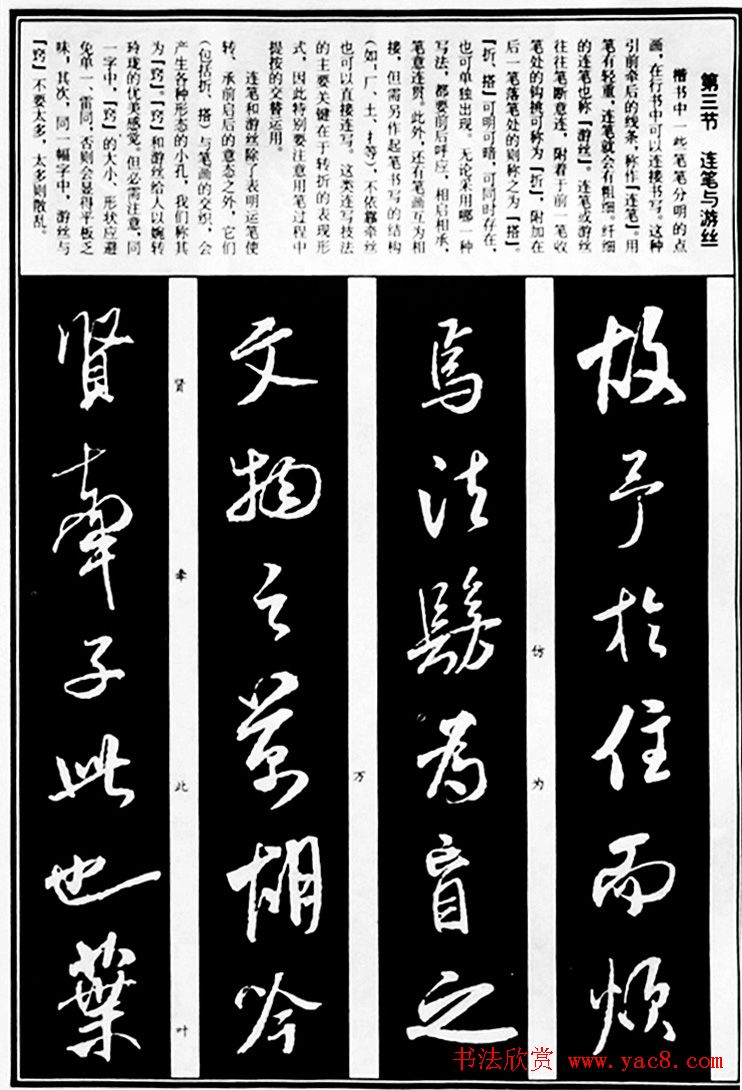 第三节 连笔与游丝
楷书中一些笔笔分明的点
画,在行书中可以连接书写。这种
引前牵后的线条,称作『连笔』。用
笔有轻重,连笔就会有粗细。纤细
的连笔也称『游丝』。连笔或游丝
往往笔断意连,附着于前一笔收
笔处的钩挑可称为『折』,附加在
后一笔落笔处的则称之为『搭』。
『折、搭』可明可暗,可同时存在,
也可单独出现。无论采用哪一种
写法,都要前后呼应,相启相承,
笔意连贯。此外,还有笔画互为相
接,但需另作起笔书写的结构
(如,厂、土、扌等),不依靠牵丝
也可以直接连写。这类连写技法
的主要关键在于转折的表现形
式,因此特别要注意用笔过程中
提按的交替运用。
连笔和游丝除了表明运笔使
转、承前启后的意态之外,它们
(包括折、搭)与笔画的交织,会
产生各种形态的小孔,我们称其
为『窍』。『窍』和游丝给人以婉转
玲珑的优美感觉。但必需注意,同
一字中,『窍』的大小、形状应避
免单一、雷同,否则会显得平板乏
味,其次,同一幅字中,游丝与
『窍』不要太多,太多则散乱。
故予於住而烦
焉法髣为盲之
仿 为
文物之万胡吟
万
贤牵子此也葉
贤 牵 此 叶
书法欣赏 www.yac8.com